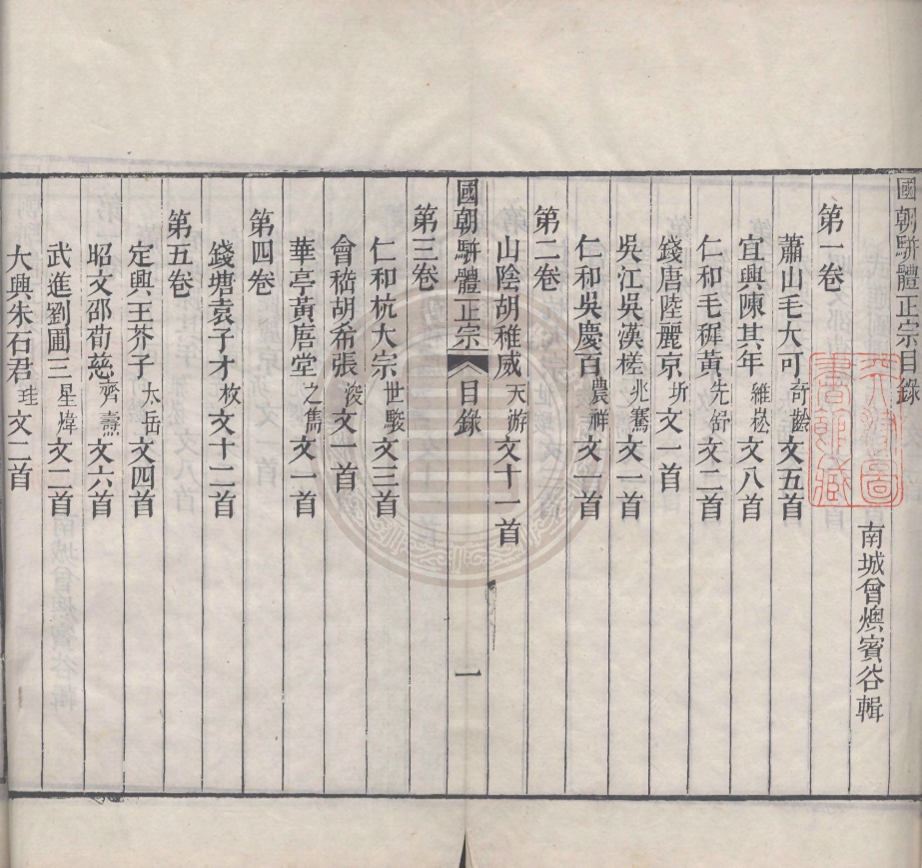 國朝騈體正宗目錄
南城曾燠賓谷輯
第一卷
蕭山毛大可奇齡文五首
宜興陳其年維崧文八首
仁和毛稺黃先舒文二首
錢唐陸麗京圻文一首
吳江吳漢槎兆騫文一首
仁和吳慶百農祥文一首
第二卷
山陰胡稚威天游文十一首
國朝騈體正宗 目錄 一
第三卷
仁和杭大宗世駿文三首
會嵇胡希張浚文一首
華亭黃唐堂之雋文一首
第四卷
錢塘袁子才枚文十二首
第五卷
定興王芥子太岳文四首
昭文邵荀慈齊燾文六首
武進劉圃三星煒文二首
大興朱石君珪文二首
天津圖
書館藏